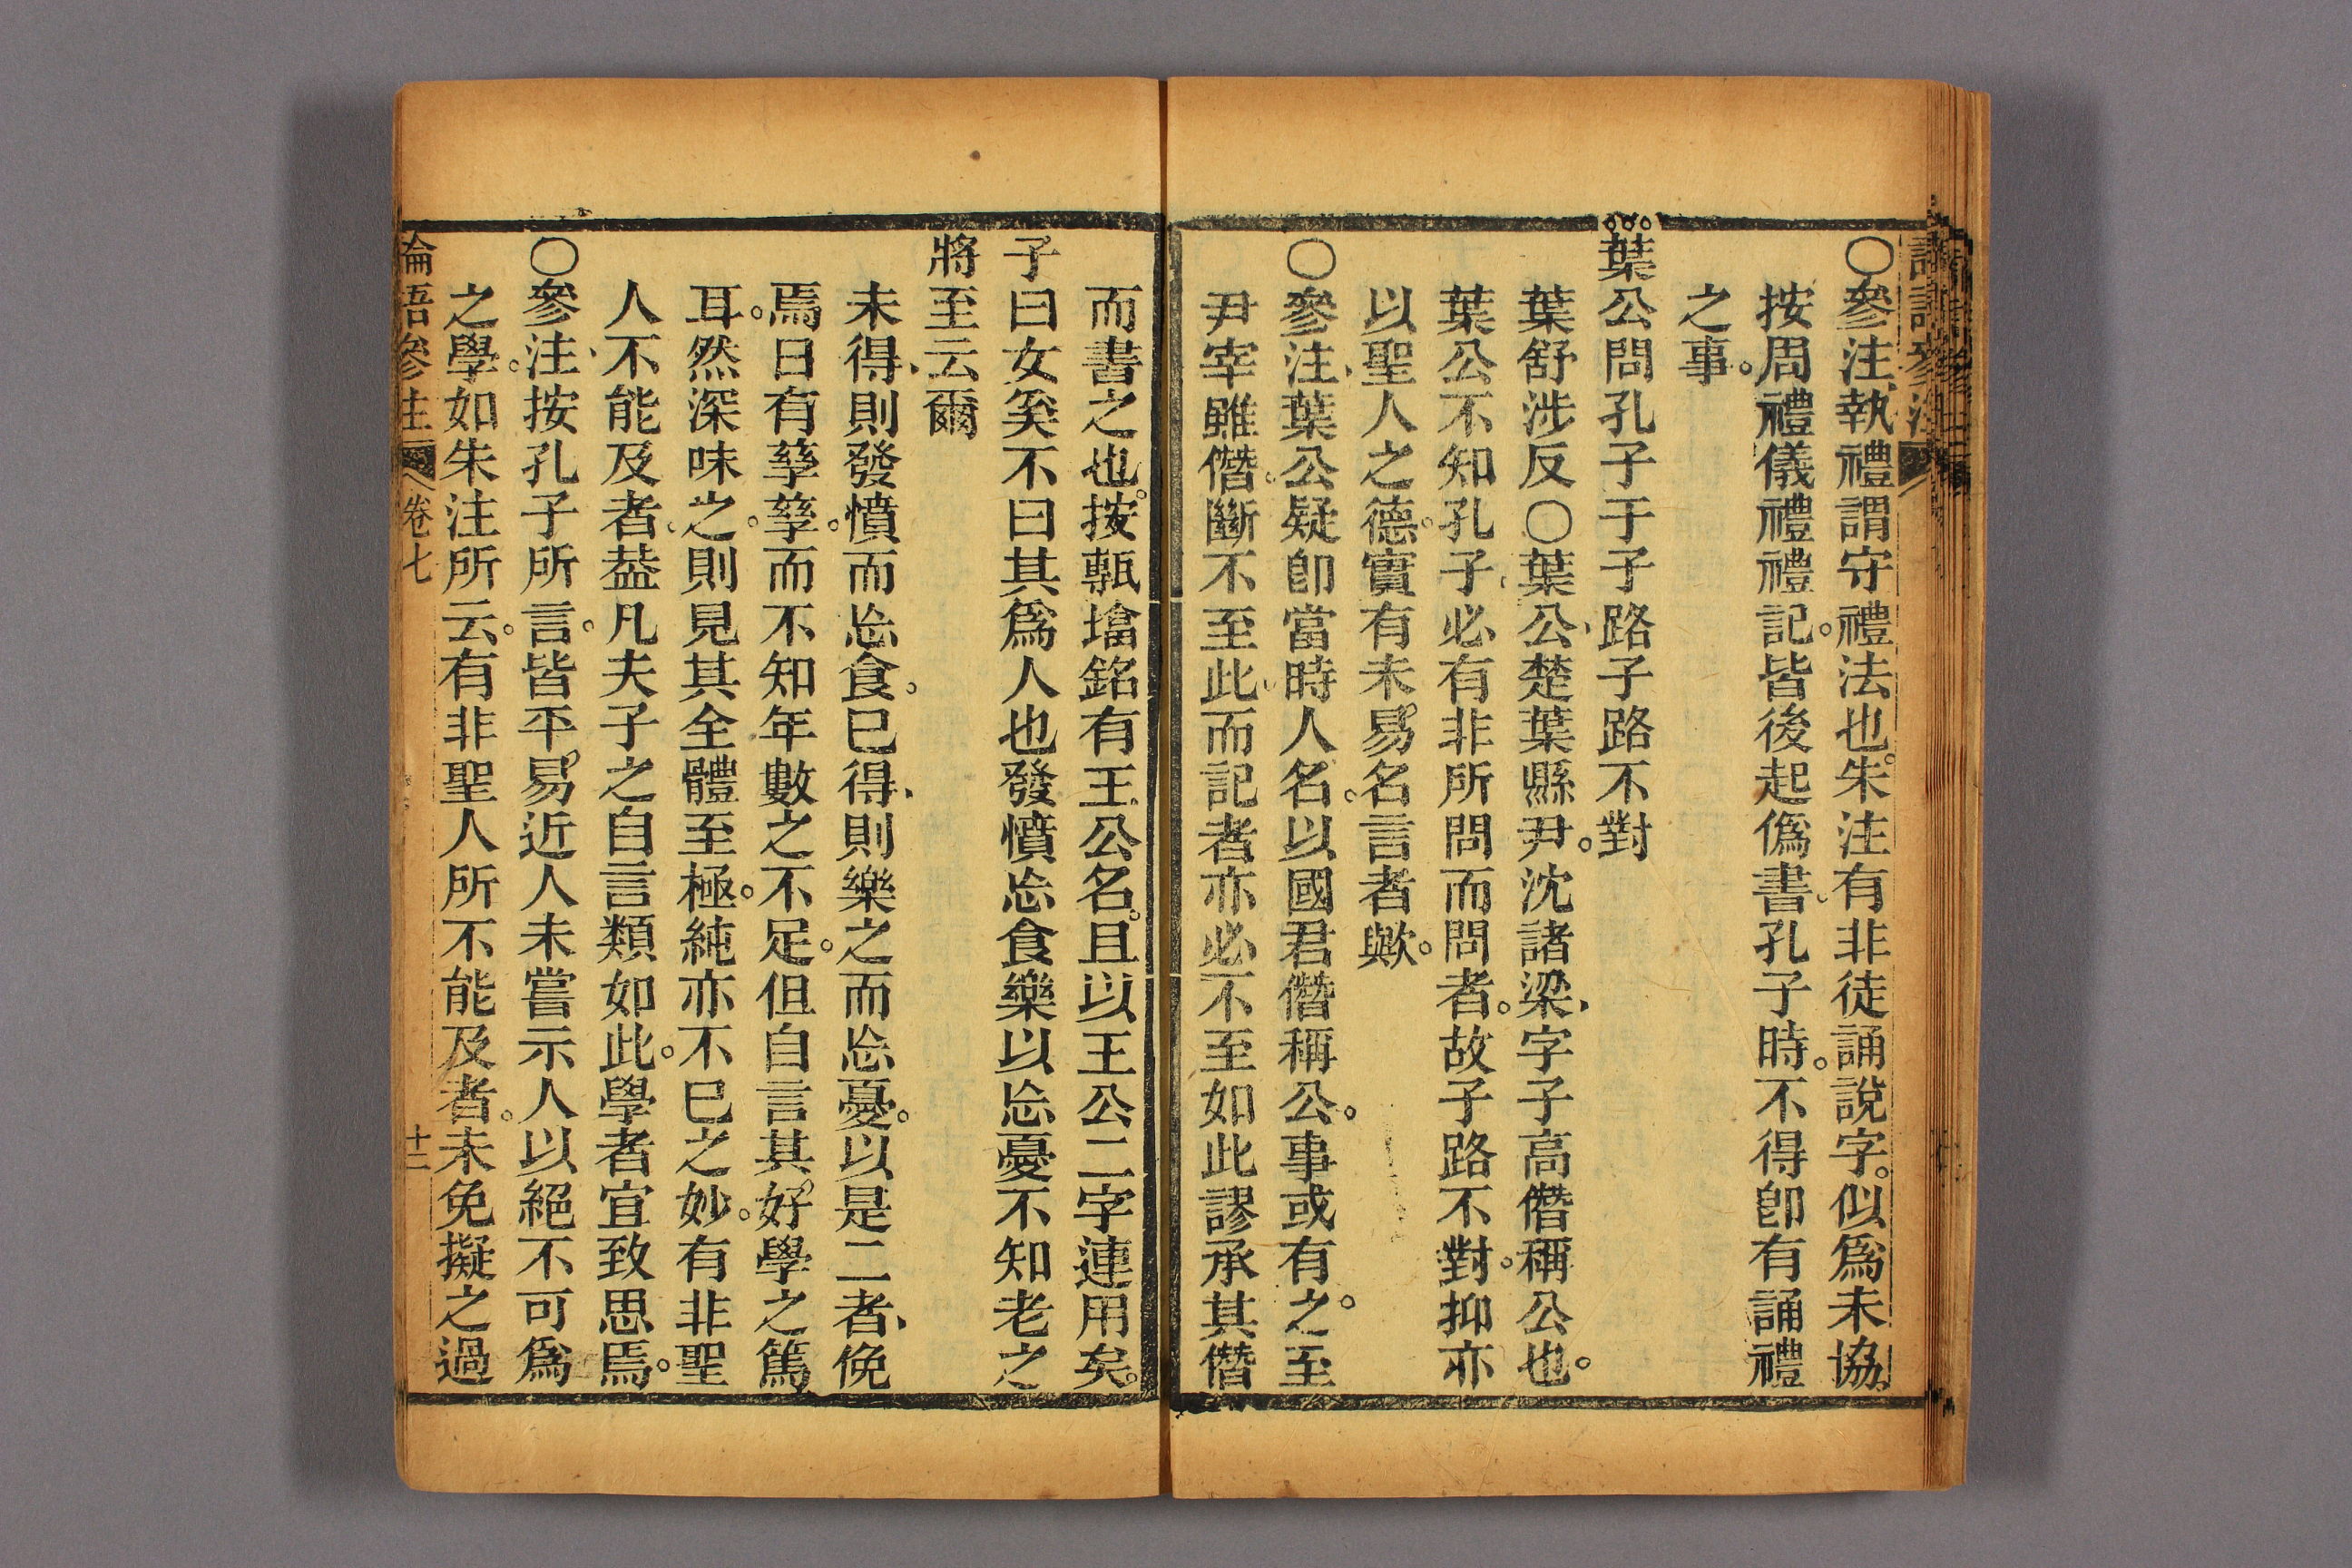 〇參注執禮謂守禮法也。朱注有非徒誦說字。似爲未協。
按周禮儀禮禮記。皆後起僞書。孔子時。不得卽有誦禮
之事。
葉公問孔子于子路子路不對
葉舒涉反〇葉公、楚葉縣尹。沈諸梁、字子高僭稱公也。
葉公不知孔子、必有非所問而問者。故子路不對。抑亦
以聖人之德。實有未易名言者歟。
〇參注、葉公疑卽當時人名。以國君僭稱公。事或有之。至
尹宰雖僭。斷不至此、而記者亦必不至如此謬承其僭
而書之也。按甎㙮銘有王公名。且以王公二字連用矣。
子曰女奚不曰其爲人也發憤忘食樂以忘憂不知老之
將至云爾
未得、則發憤而忘食。已得、則樂之而忘憂。以是二者、俛
焉日有孳孳。而不知年數之不足。但自言其好學之篤
耳。然深味之。則見其全體至極。純亦不已之妙。有非聖
人不能及者、葢凡夫子之自言類如此。學者宜致思焉。
〇參注、按孔子所言。皆平易近人未嘗示人以絕不可爲
之學。如朱注所云。有非聖人所不能及者。未免擬之過
論語參注 卷七 十二